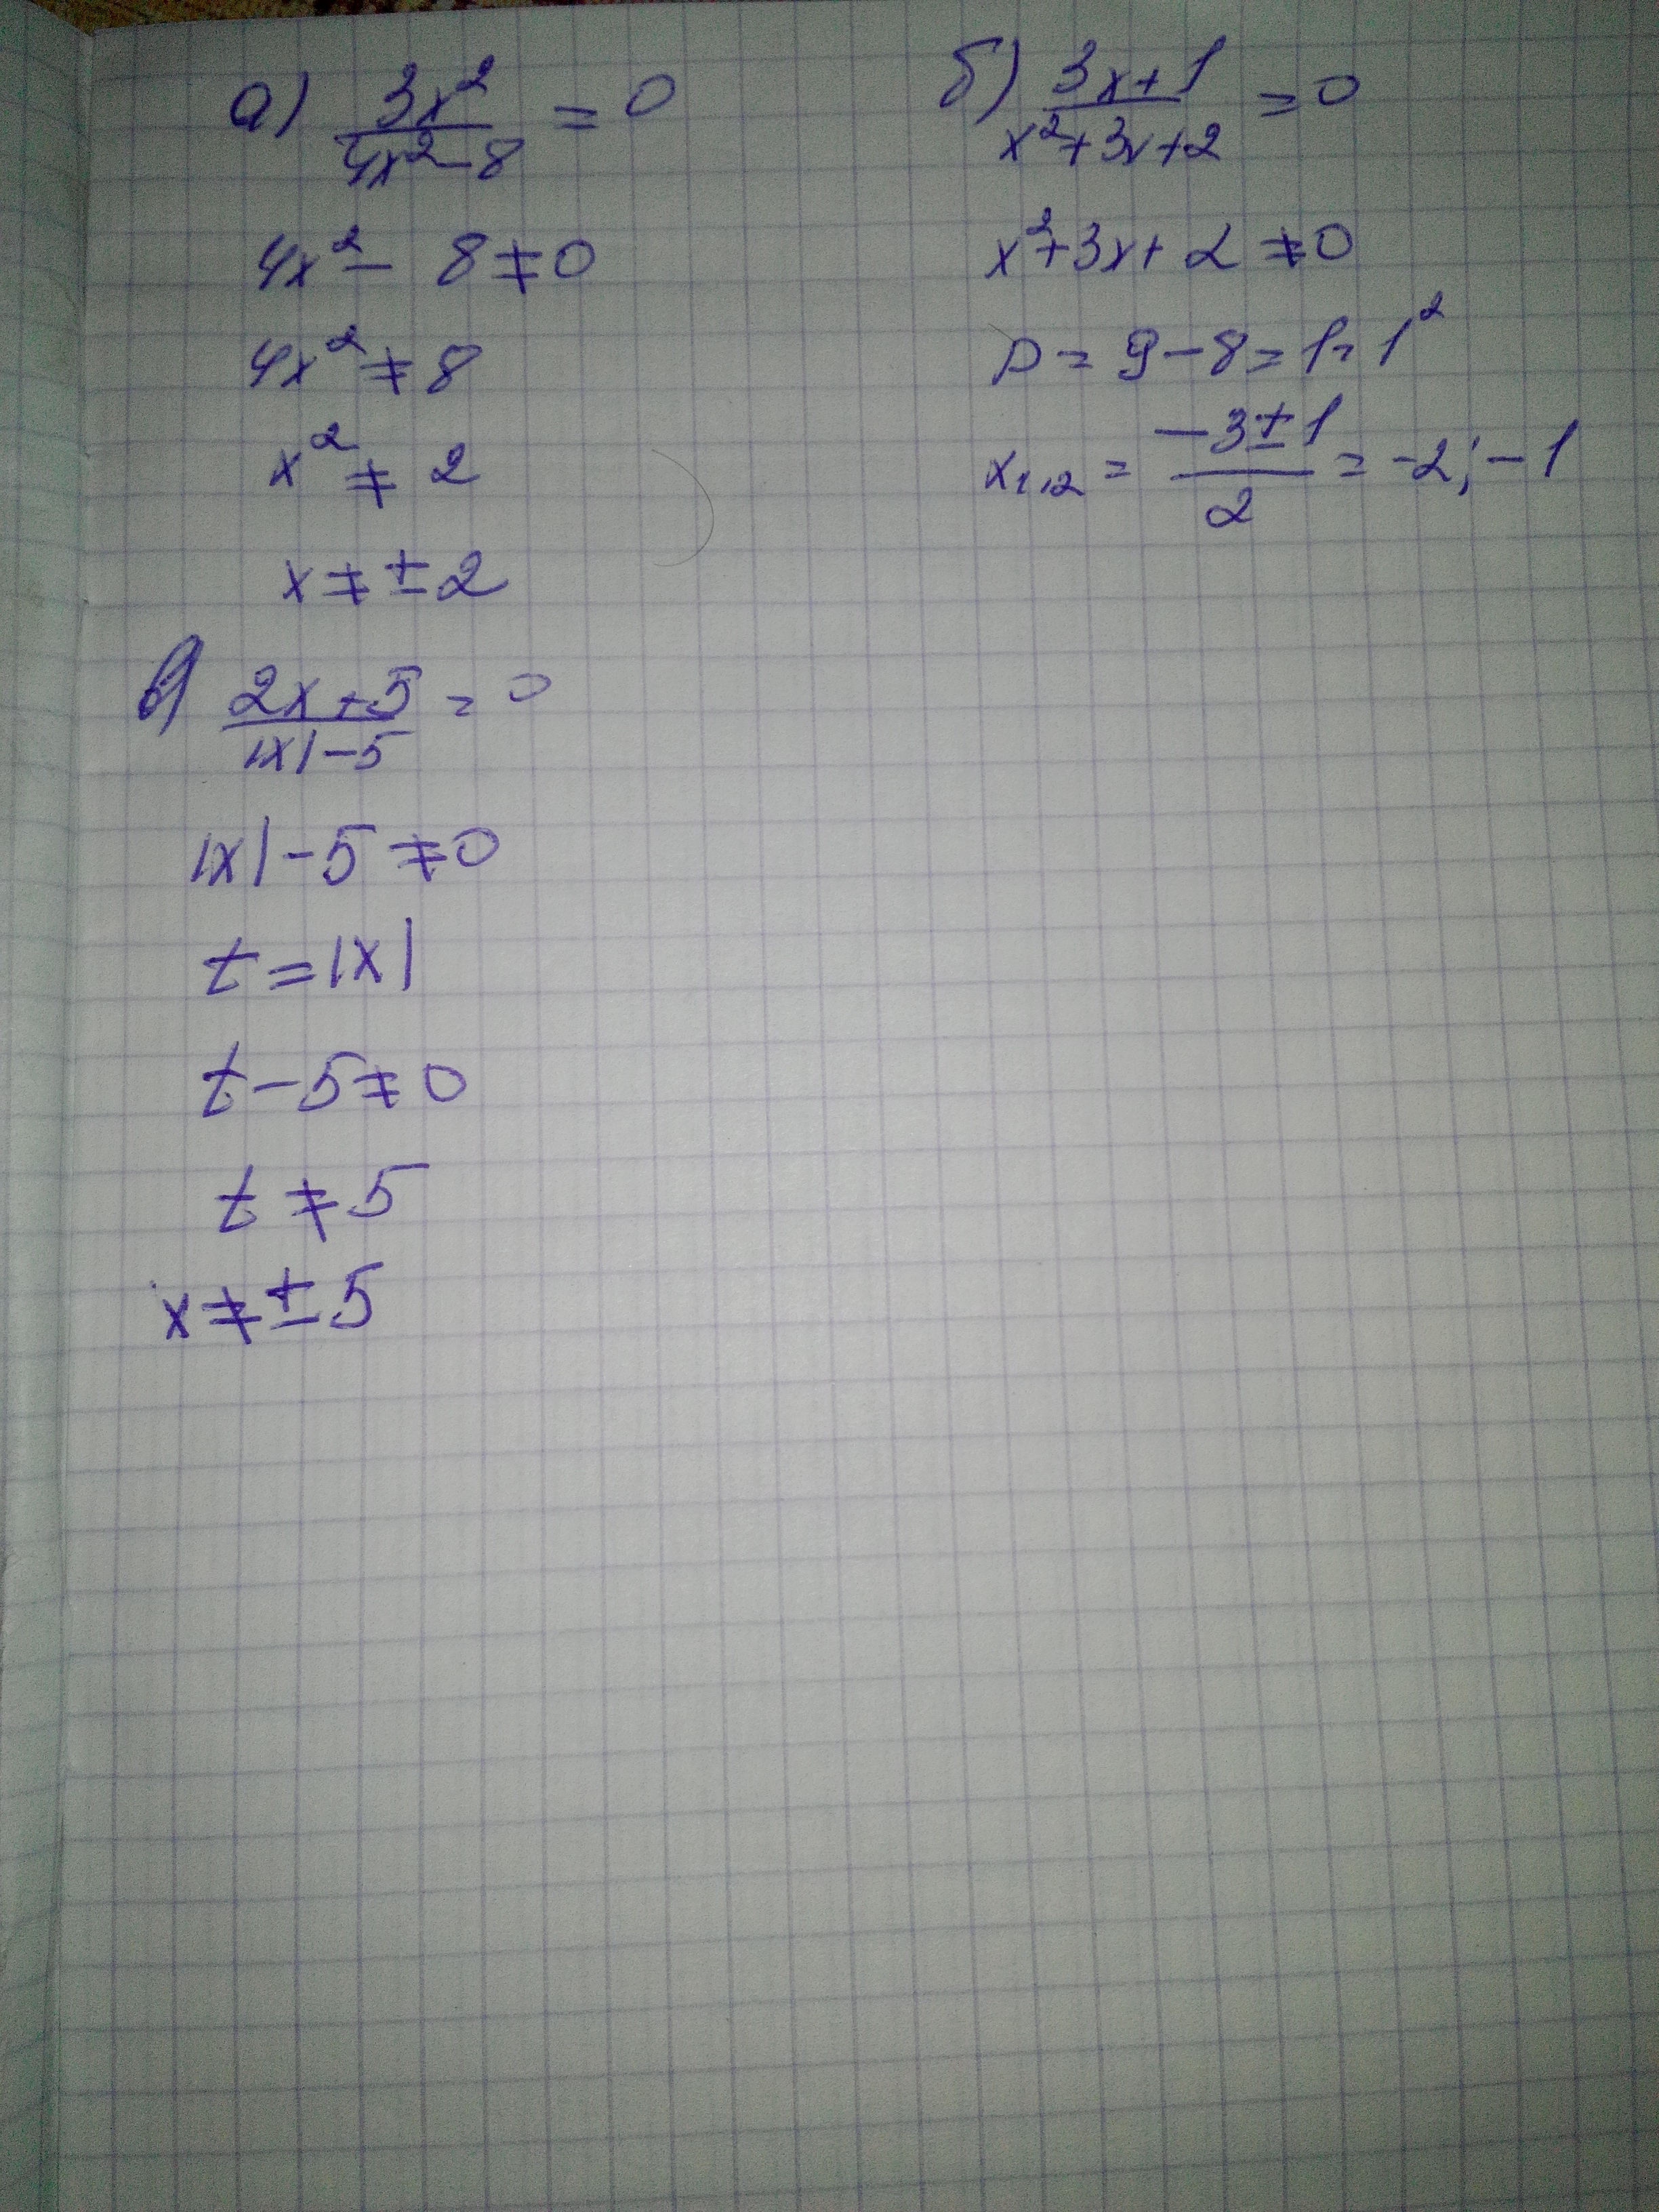 а) 3x²/4x²-8 = 0
4x² - 8 ≠ 0
4x² ≠ 8
x² ≠ 2
x ≠ ±2
б) 3x+1/x²+3x+2 = 0
x²+3x+2 ≠ 0
D = 9-8 = 1 = 1²
x₁,₂ = -3±1/2 = -2; -1
в) 2x+5/|x|-5 = 0
|x|-5 ≠ 0
t = |x|
t-5 ≠ 0
t ≠ 5
x ≠ ±5